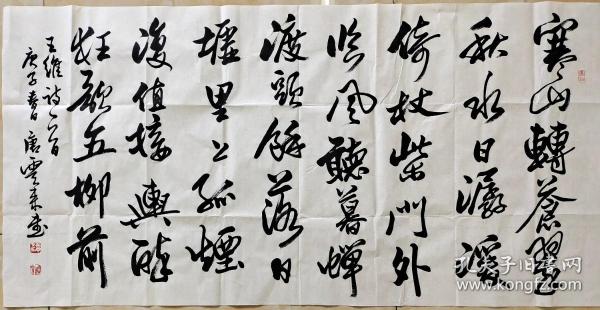 寒山轉蒼翠
秋水日潺湲
倚杖柴門外
临风聽暮蝉
渡頭餘落日
墟里上孤煙
復值接輿醉
狂歌五柳前
王維詩一首
庚子春 唐雲来書
孔夫子旧書网
www.kongfz.com